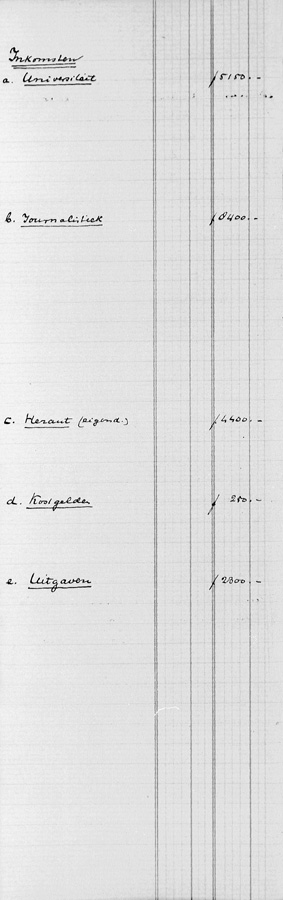 Inkomsten
a. Universiteit ƒ 5150.-
b. Journalistiek ƒ 8400.-
c. Heraut (eigend.) ƒ 4400.-
d. Kostgelden ƒ 250.-
e. Uitgaven ƒ 2300.-